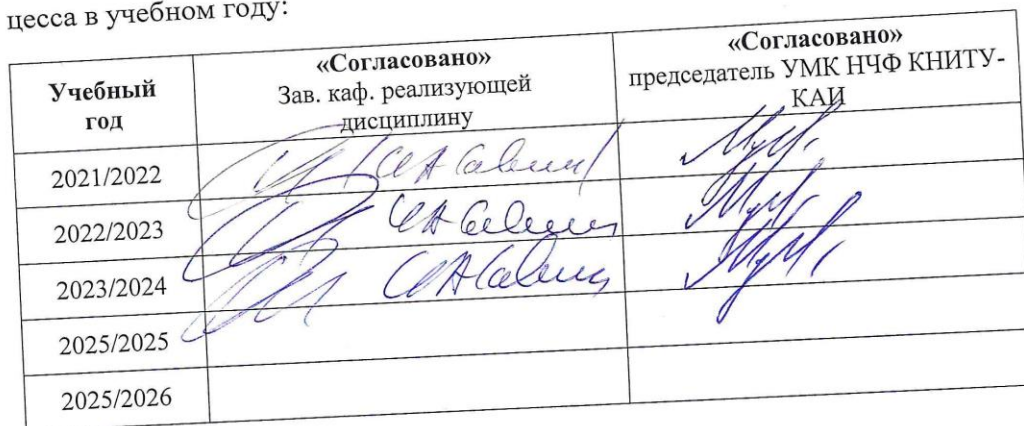 цесса в учебном году:
Учебный
год
«Согласовано»
Зав. каф. реализующей
дисциплину
«Согласовано»
председатель УМК НЧФ КНИТУ-
КАИ
2021/2022
2022/2023
2023/2024
2025/2025
2025/2026